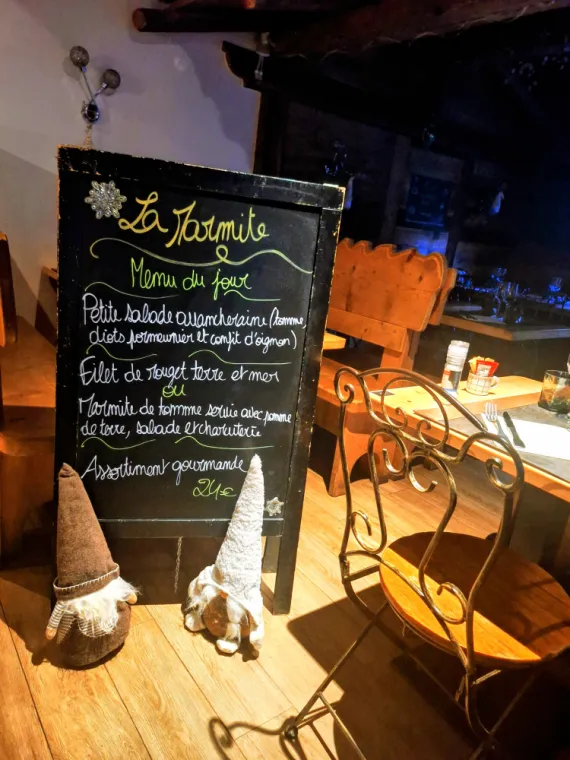 La Marmite
Menu du jour
Petite salade avancheraine (tomme,
diots pormenier et confit d'oignon)
Filet de rouget terre et mer
ou
Marmite de tomme servie avec pomme
de terre, salade et charcuterie
Assortiment gourmande
24€